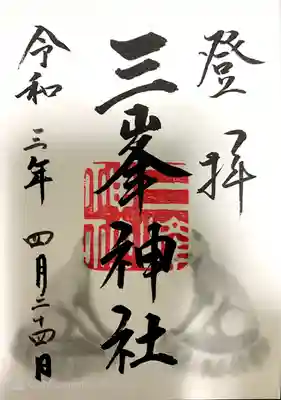 登拝
三峯神社
令和三年四月二十四日